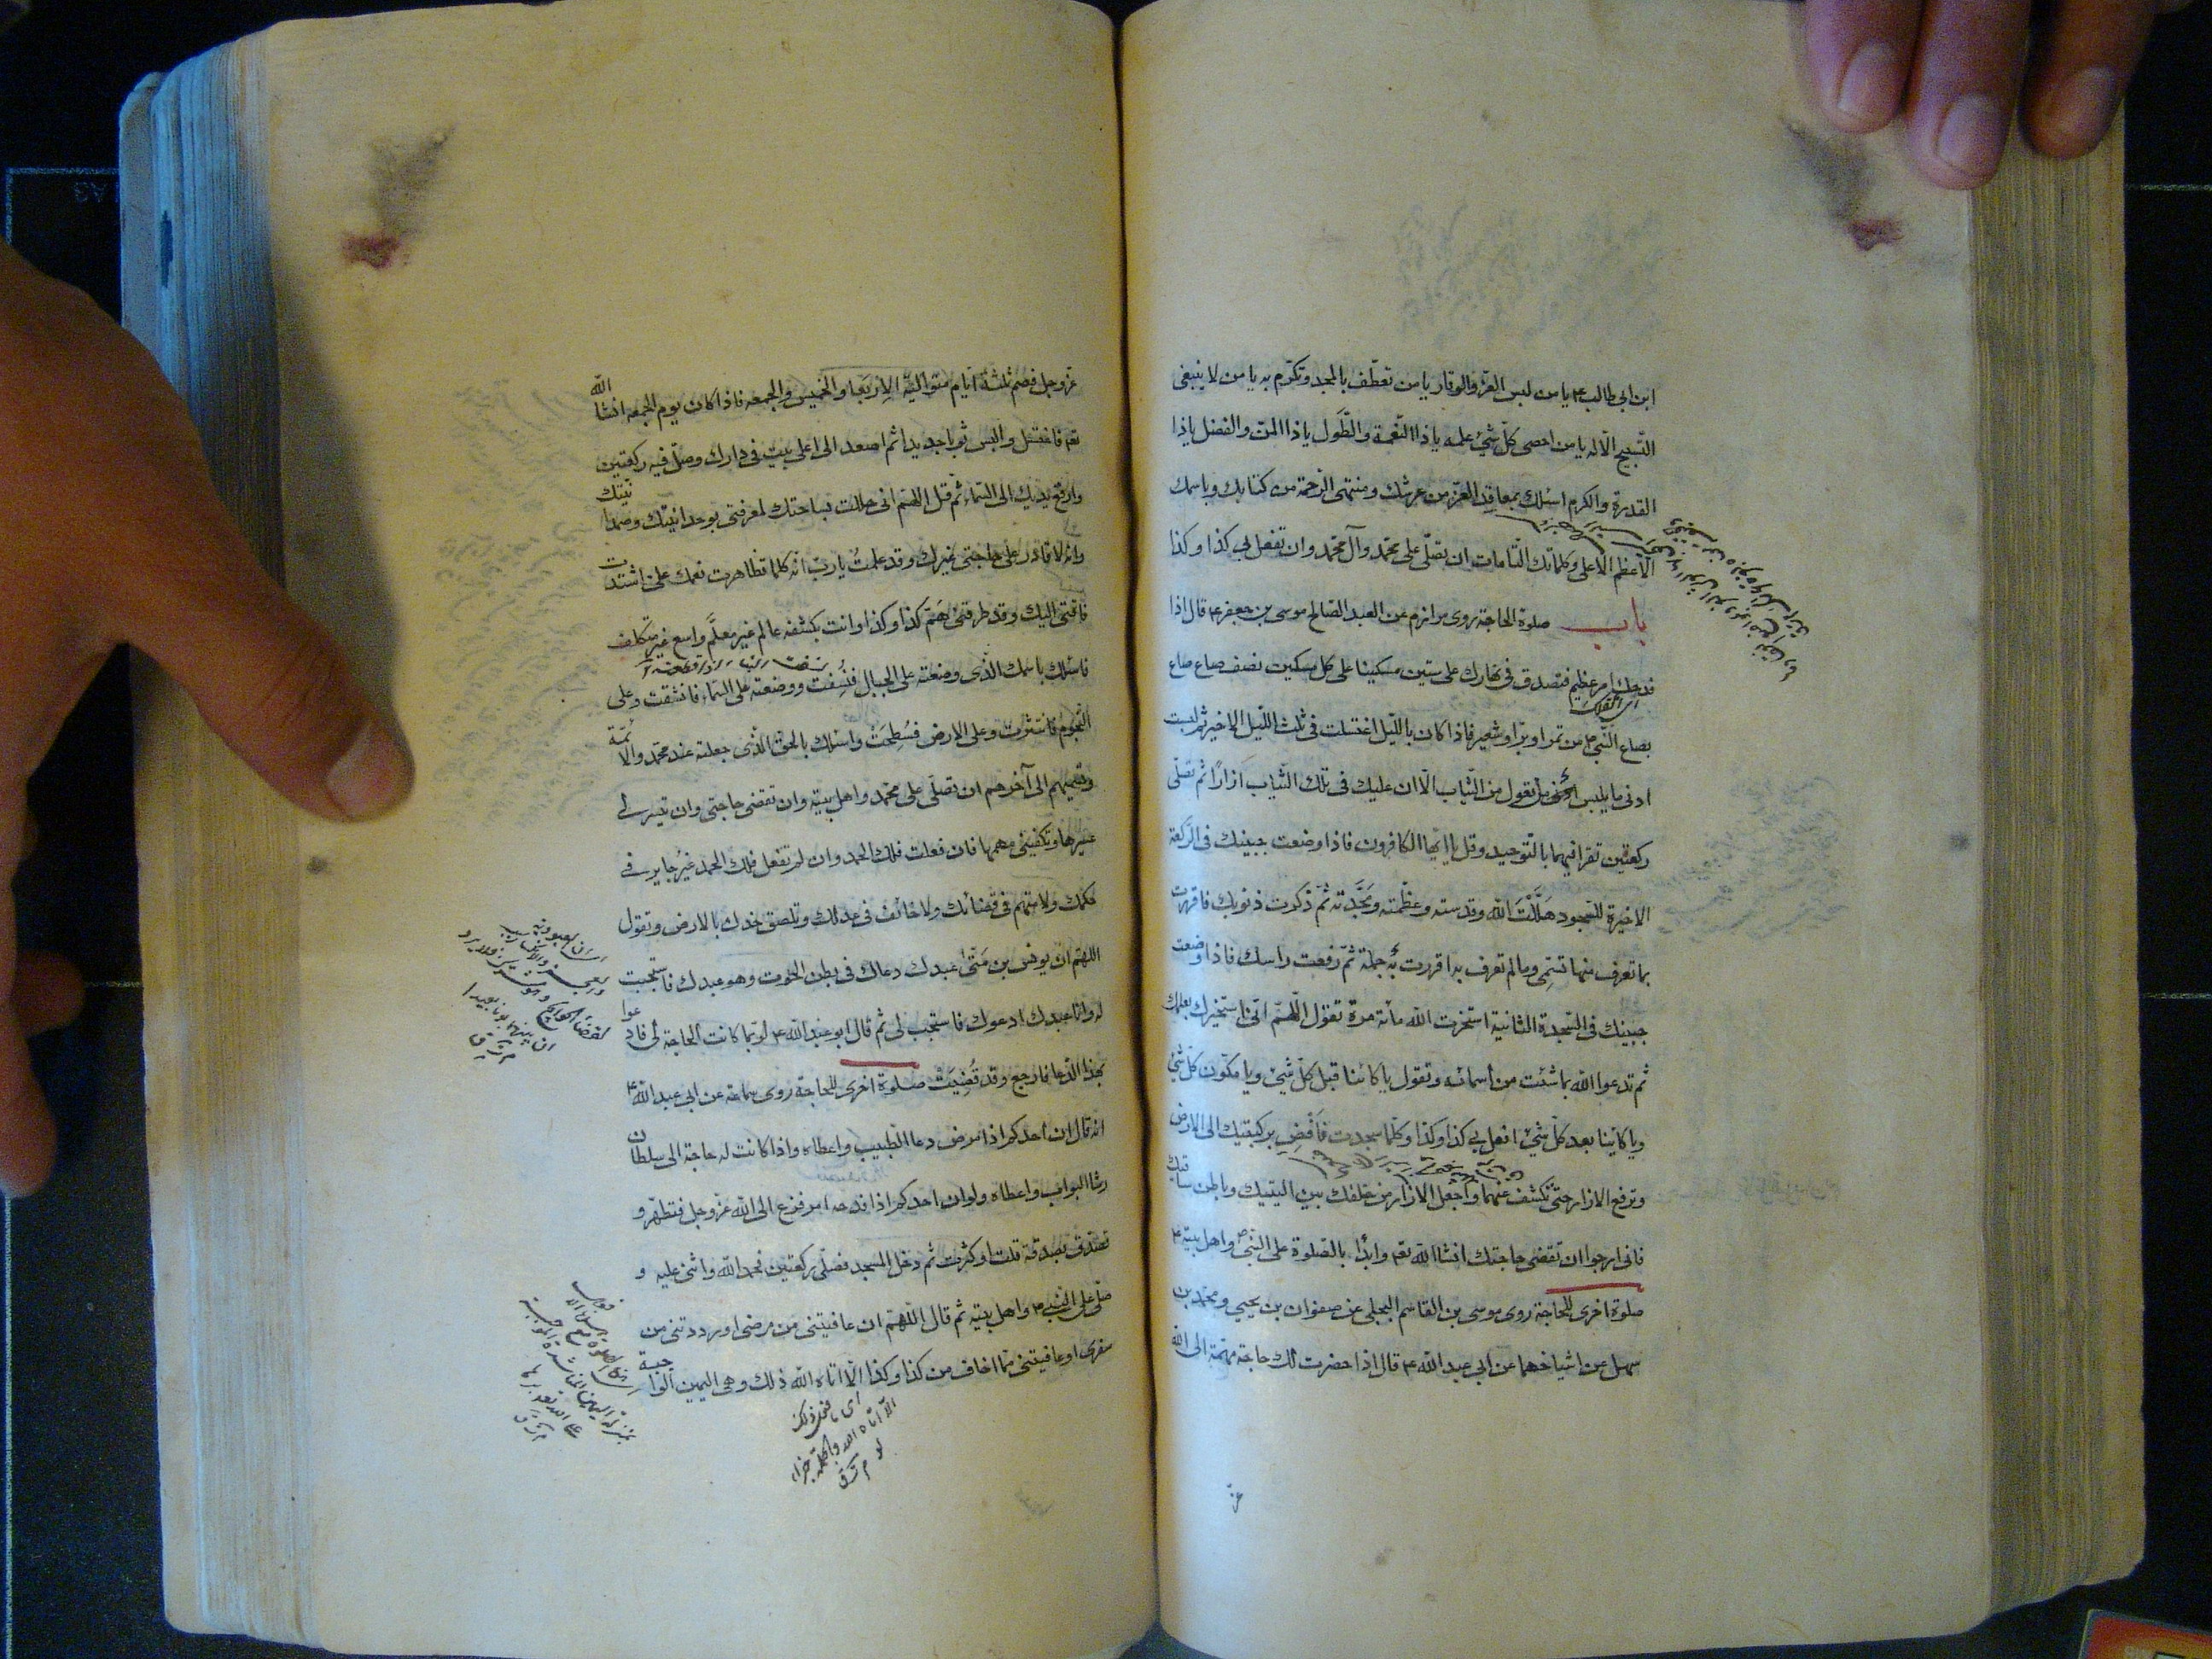 ابن ابى طالب ع يا من لبس العزّ والوقار يا من تعطّف بالمجد وتكرّم به يا من لا ينبغى
التّسبيح الّا له يا من احصى كلّ شئ علمه يا ذا النّعمة والطَّول يا ذا المنّ والفضل يا ذا
القدرة والكرم اسئلك بمعاقد العزّ من عرشك ومنتهى الرحمة من كتابك وباسمك
الاعظم الاعلى وكلماتك التّامات ان تصلّى على محمّد وآل محمّد وان تفعل بى كذا وكذا
باب صلوة الحاجة روى مرازم عن العبد الصّالح موسى بن جعفر ع قال اذا
فدحك امر عظيم فتصدق فى نهارك على ستين مسكينا على كل مسكين نصف صاع صاع
بصاع النّبى ص من تمر او برّ او شعير فاذا كان باللّيل اغتسلت فى ثلث اللّيل الاخير ثم لبست
ادنى ما يلبس من تعول من الثّياب الّا ان عليك فى تلك الثّياب ازارًا ثم تصلّى
ركعتين تقرا فيهما بالتوحيد وقل يا ايّها الكافرون فاذا وضعت جبينك فى الرّكعة
الاخيرة للسّجود هَلَّلْتَ الله وقدسته وعظّمته ومَجَّدته ثُمّ ذكرت ذنوبك فاقررت
بما تعرف منها تسمّى وما لم تعرف به اقررت به جملة ثمّ رفعت راسك فاذا وضعت
جبينك فى السّجدة الثانية استخرت الله مائة مرة تقول اللّهمّ انّى استخيرك بعلمك
ثم تدعوا الله بما شئت من اسمائه وتقول يا كائنا قبل كلّ شئ ويا مكوّن كلّ شئ
ويا كاينا بعد كلّ شئ افعل بى كذا وكذا وكلّما سجدت فَافْضِ بركبتيك الى الارض
وترفع الازار حتّى تكشف عنهما واجعل الازار من خلفك بين اليتيك وباطن ساقيك
فانى ارجوا ان تقضى حاجتك انشا الله تعه وابدأ بالصّلوة على النّبى ص واهل بيته ع
صلوة اخرى للحاجة روى موسى بن القاسم البجلى عن صفوان بن يحيى ومحمد بن
سهل عن اشياخهما عن ابى عبد الله ع قال اذا حضرت لك حاجة مهمّة الى الله
عزّ
عزّ وجل فصم ثلثة ايّام متوالية الاربعا والخميس والجمعه فاذا كان يوم الجمعه انشا الله
تعه فاغتسل والبس ثوبا جديدا ثم اصعد الى اعلى بيت فى دارك وصلّ فيه ركعتين
وارفع يديك الى السّماء ثم قل اللّهمّ انى حللت بساحتك لمعرفتى بوحدانيّتك وصمدانيّتك
وانه لا قادر على حاجتى غيرك وقد علمتُ يا ربّ انّه كلما تظاهرت نعمك علىّ اشتدت
فاقتى اليك وقد طرقنى هَمّ كذا وكذا وانت بكشفه عالم غير معلَّم واسع غير متكلّف
فاسئلك باسمك الّذى وضعته على الجبال فنُسِفت ووضعته على السّماء فانشقت وعلى
النّجوم فانتثرت وعلى الارض فسُطِحَتْ واسئلك بالحقّ الّذى جعلته عند محمّد والائمّة
وتسمّيهم الى آخرهم ان تصلّى على محمّد واهل بيته وان تقضى حاجتى وان تيسر لى
عسيرها وتكفينى مهمها فان فعلت فلك الحمد وان لم تفعل فلك الحمد غيرُ جاير فى
حكمك ولا متّهم فى قضائك ولا حائف فى عدلك وتلصق خدك بالارض وتقول
اللهمّ انّ يونس بن مَتّى عبدك دعاك فى بطن الحوت وهو عبدك فاستجبت
له وانا عبدك ادعوك فاستجب لى ثم قال ابو عبد الله ع لربّما كانت الحاجة لى فادعوا
بهذا الدّعا فارجع وقد قُضِيَتْ صلوة اخرى للحاجة روى سماعة عن ابى عبد الله ع
انه قال ان احدكم اذا مرض دعا الطّبيب واعطاه واذا كانت له حاجة الى سلطان
رشا البوّاب واعطاه ولو ان احدكم اذا فدحه امر فزع الى الله عزّ وجل فتطهّر و
تصدّق بصدقة قلّت او كثرت ثم دخل المسجد فصلّى ركعتين فحمد الله واثنى عليه و
صلّى على النّبى ص واهل بيته ثم قال اللّهمّ ان عافيتنى من مرضى او رددتنى من
سفرى او عافيتنى ممّا اخاف من كذا وكذا الّا اتاه الله ذلك وهى اليمين الواجبة